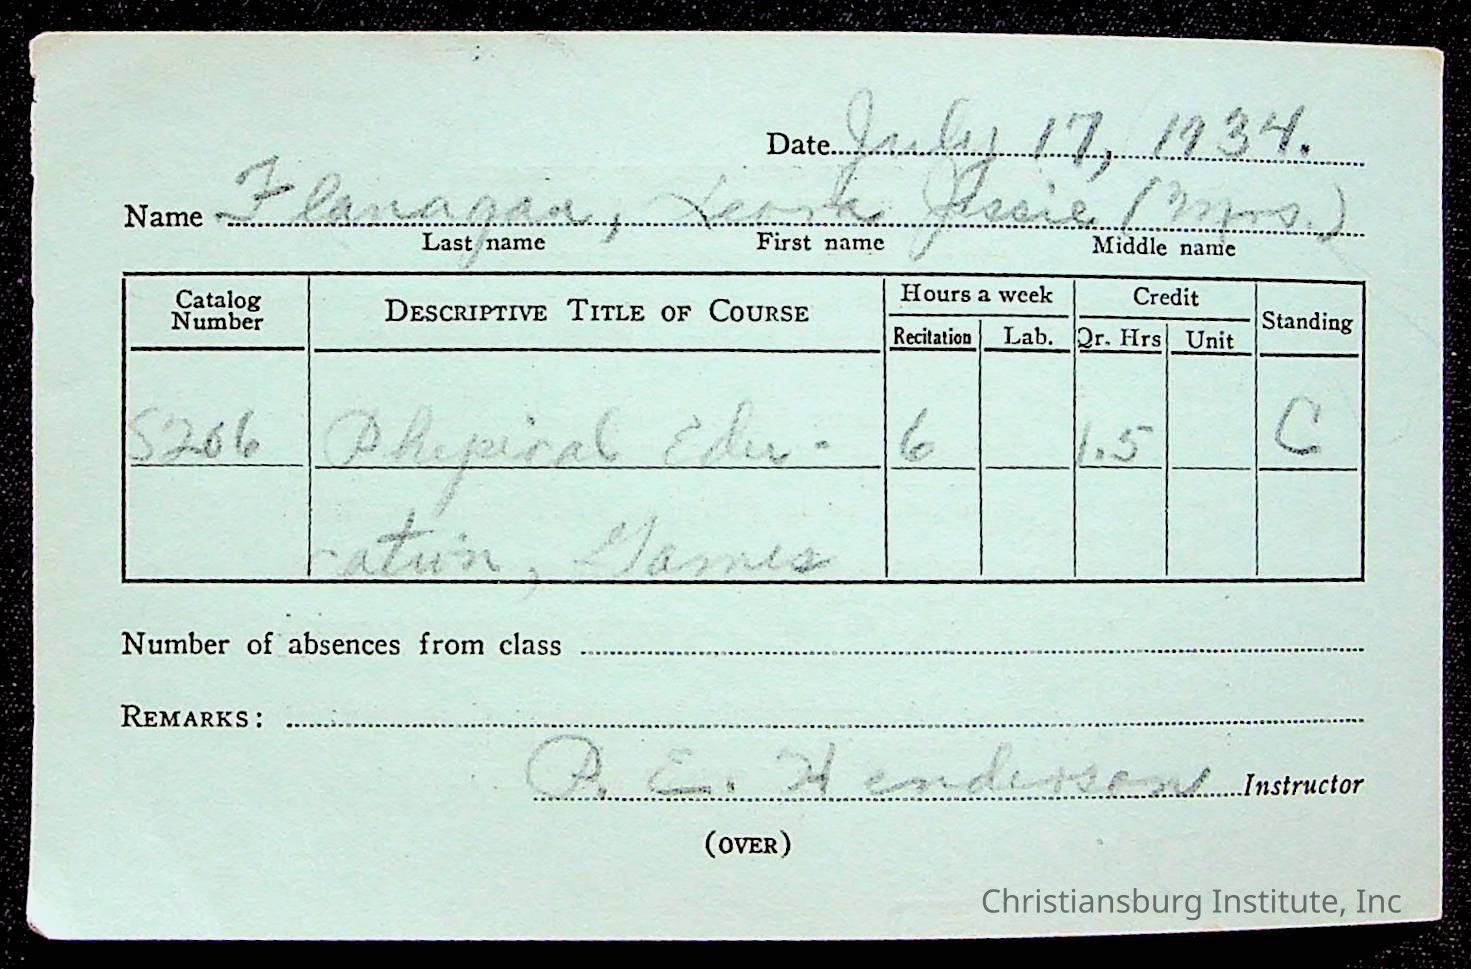 Date July 17, 1934.
Name Flanagan, Jessie (Mrs.)
Last name First name Middle name
Catalog Number DESCRIPTIVE TITLE OF COURSE Hours a week Credit Standing
Recitation Lab. Qr. Hrs Unit
S206 Physical Edu- 6 1.5 C
cation, Games
Number of absences from class
REMARKS:
P. E. Henderson Instructor
(OVER)
Christiansburg Institute, Inc